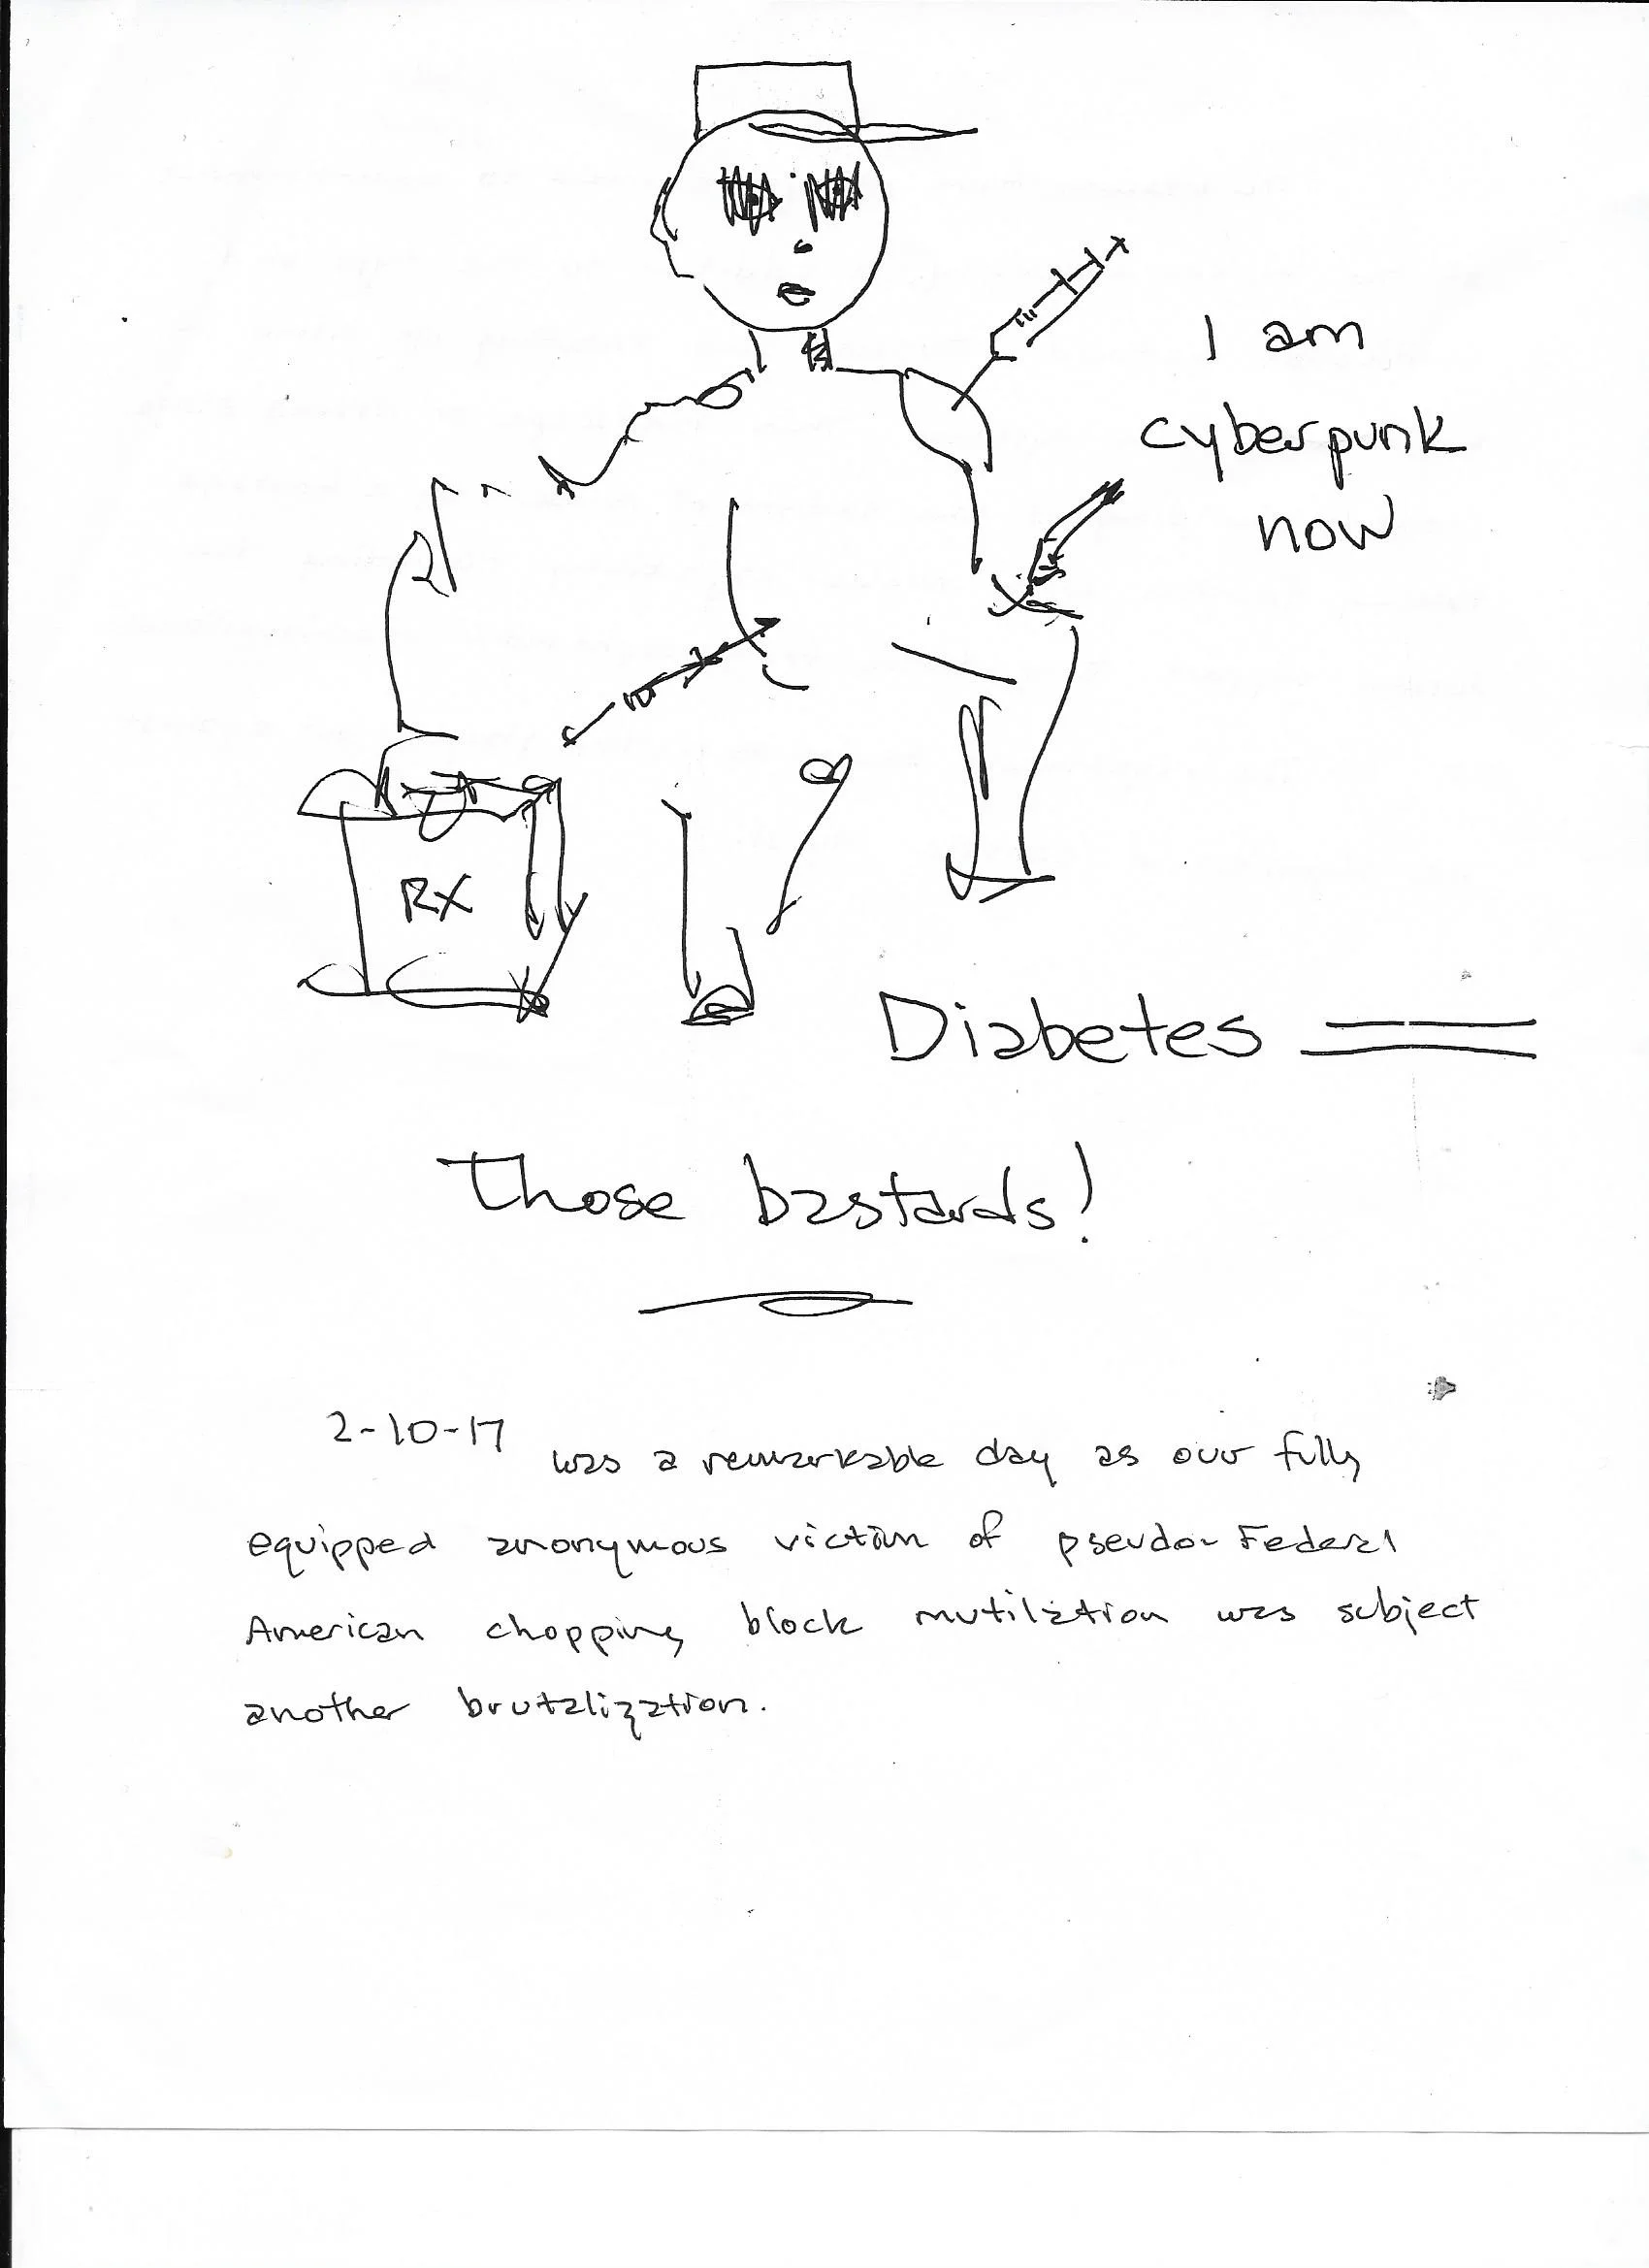 I am
cyberpunk
now
RX
Diabetes
Those bastards!
2-10-17 was a remarkable day as our fully
equipped anonymous victim of pseudo-Federal
American chopping block mutilation was subject
another brutalization.